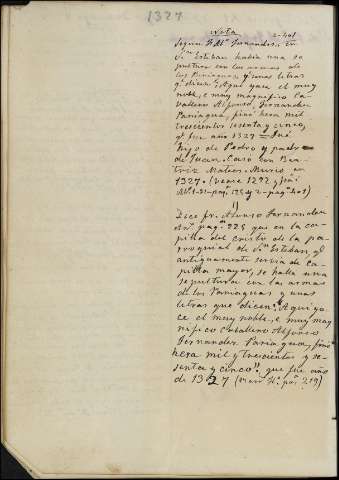 1327
Nota
2-401
Segun Fr. Al. Fernandez en
Sn Esteban habia una se
pultura con las armas de
los Paniaguas y unas letras
q. dicen: Aqui yace el muy
noble, e muy magnifico Ca
vallero Alfonso, Fernandez
Paniagua, finó hera mil
trescientos sesenta y cinco,
q. fue año 1327 = Fué
hijo de Pedro y padre
de Juan. Casó con Bea
triz Mateos. Murió en
1327. (vease 1292
Dice fr. Alonso Fernandez
pag. 225 que en la ca
pilla del cristo de la pa
rroquial de Sn Esteban, q.
antiguamente servia de ca
pilla mayor, se halla una
sepultura con las armas
de los Paniaguas y unas
letras que dicen: "Aqui ya
ce el muy noble, e muy mag
nifico caballero Alfonso
Fernandez Paniagua, finó
hera mil y trescientos y se
senta y cinco", que fue año
de 1327